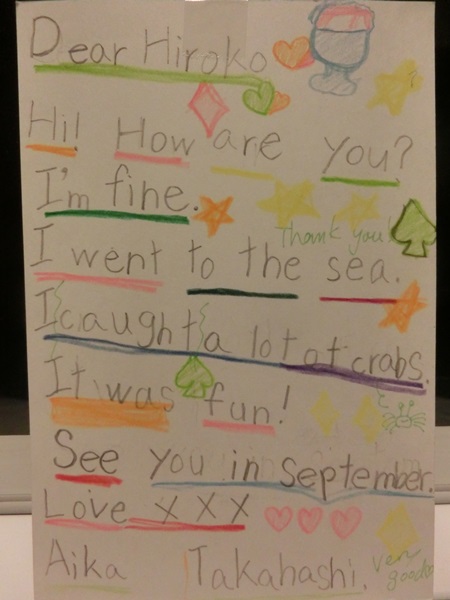 Dear Hiroko
Hi! How are you?
I'm fine.
Thank you!
I went to the sea.
I caught a lot of crabs.
It was fun!
See you in September.
Love XXX
Aika Takahashi.
very
good